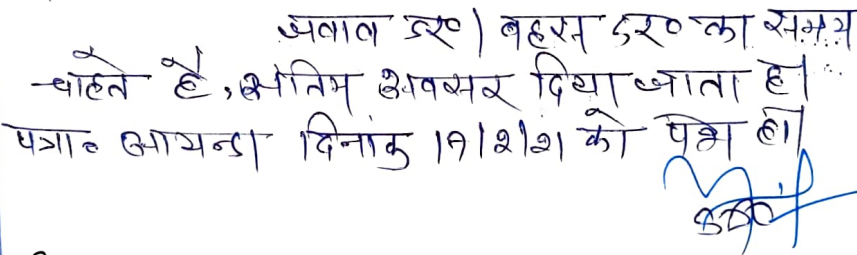 जवाब दर० | बहस दर० का समय
चाहते है, अंतिम अवसर दिया जाता है।
पत्रा० आयन्दा दिनांक 17/2/21 को पेश हो।